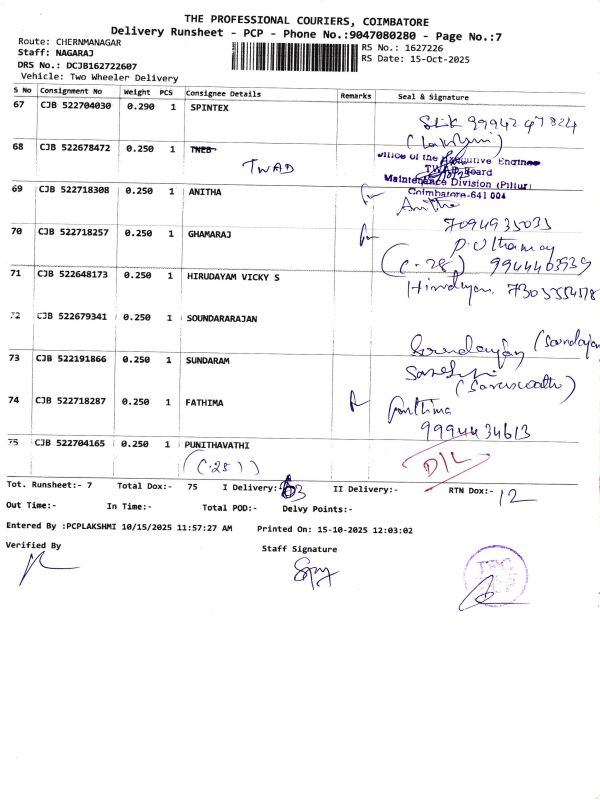 THE PROFESSIONAL COURIERS, COIMBATORE
Delivery Runsheet - PCP - Phone No.:9047080280 - Page No.:7
Route: CHERNMANAGAR
Staff: NAGARAJ
DRS No.: DCJB162722607
Vehicle: Two Wheeler Delivery
RS No.: 1627226
RS Date: 15-Oct-2025
S No Consignment No Weight PCS Consignee Details Remarks Seal & Signature
67 CJB 522704030 0.290 1 SPINTEX
99942 97824
(Lakshmi)
68 CJB 522678472 0.250 1 TNEB
TWAD
Office of the Executive Engineer
TWAD Board
Maintenance Division (Pillur)
Coimbatore-641 004
69 CJB 522718308 0.250 1 ANITHA
for Anitha
7094935033
70 CJB 522718257 0.250 1 GHAMARAJ
for P. Uthamay
(C-28) 9944403939
71 CJB 522648173 0.250 1 HIRUDAYAM VICKY S
Hirudayam 7305554578
72 CJB 522679341 0.250 1 SOUNDARARAJAN
73 CJB 522191866 0.250 1 SUNDARAM
(Saraswathi)
74 CJB 522718287 0.250 1 FATHIMA
Fathima
9994434613
75 CJB 522704165 0.250 1 PUNITHAVATHI
D/L
Tot. Runsheet:- 7 Total Dox:- 75 I Delivery:- 63 II Delivery:- RTN Dox:- 12
Out Time:- In Time:- Total POD:- Delvy Points:-
Entered By :PCPLAKSHMI 10/15/2025 11:57:27 AM Printed On: 15-10-2025 12:03:02
Verified By Staff Signature